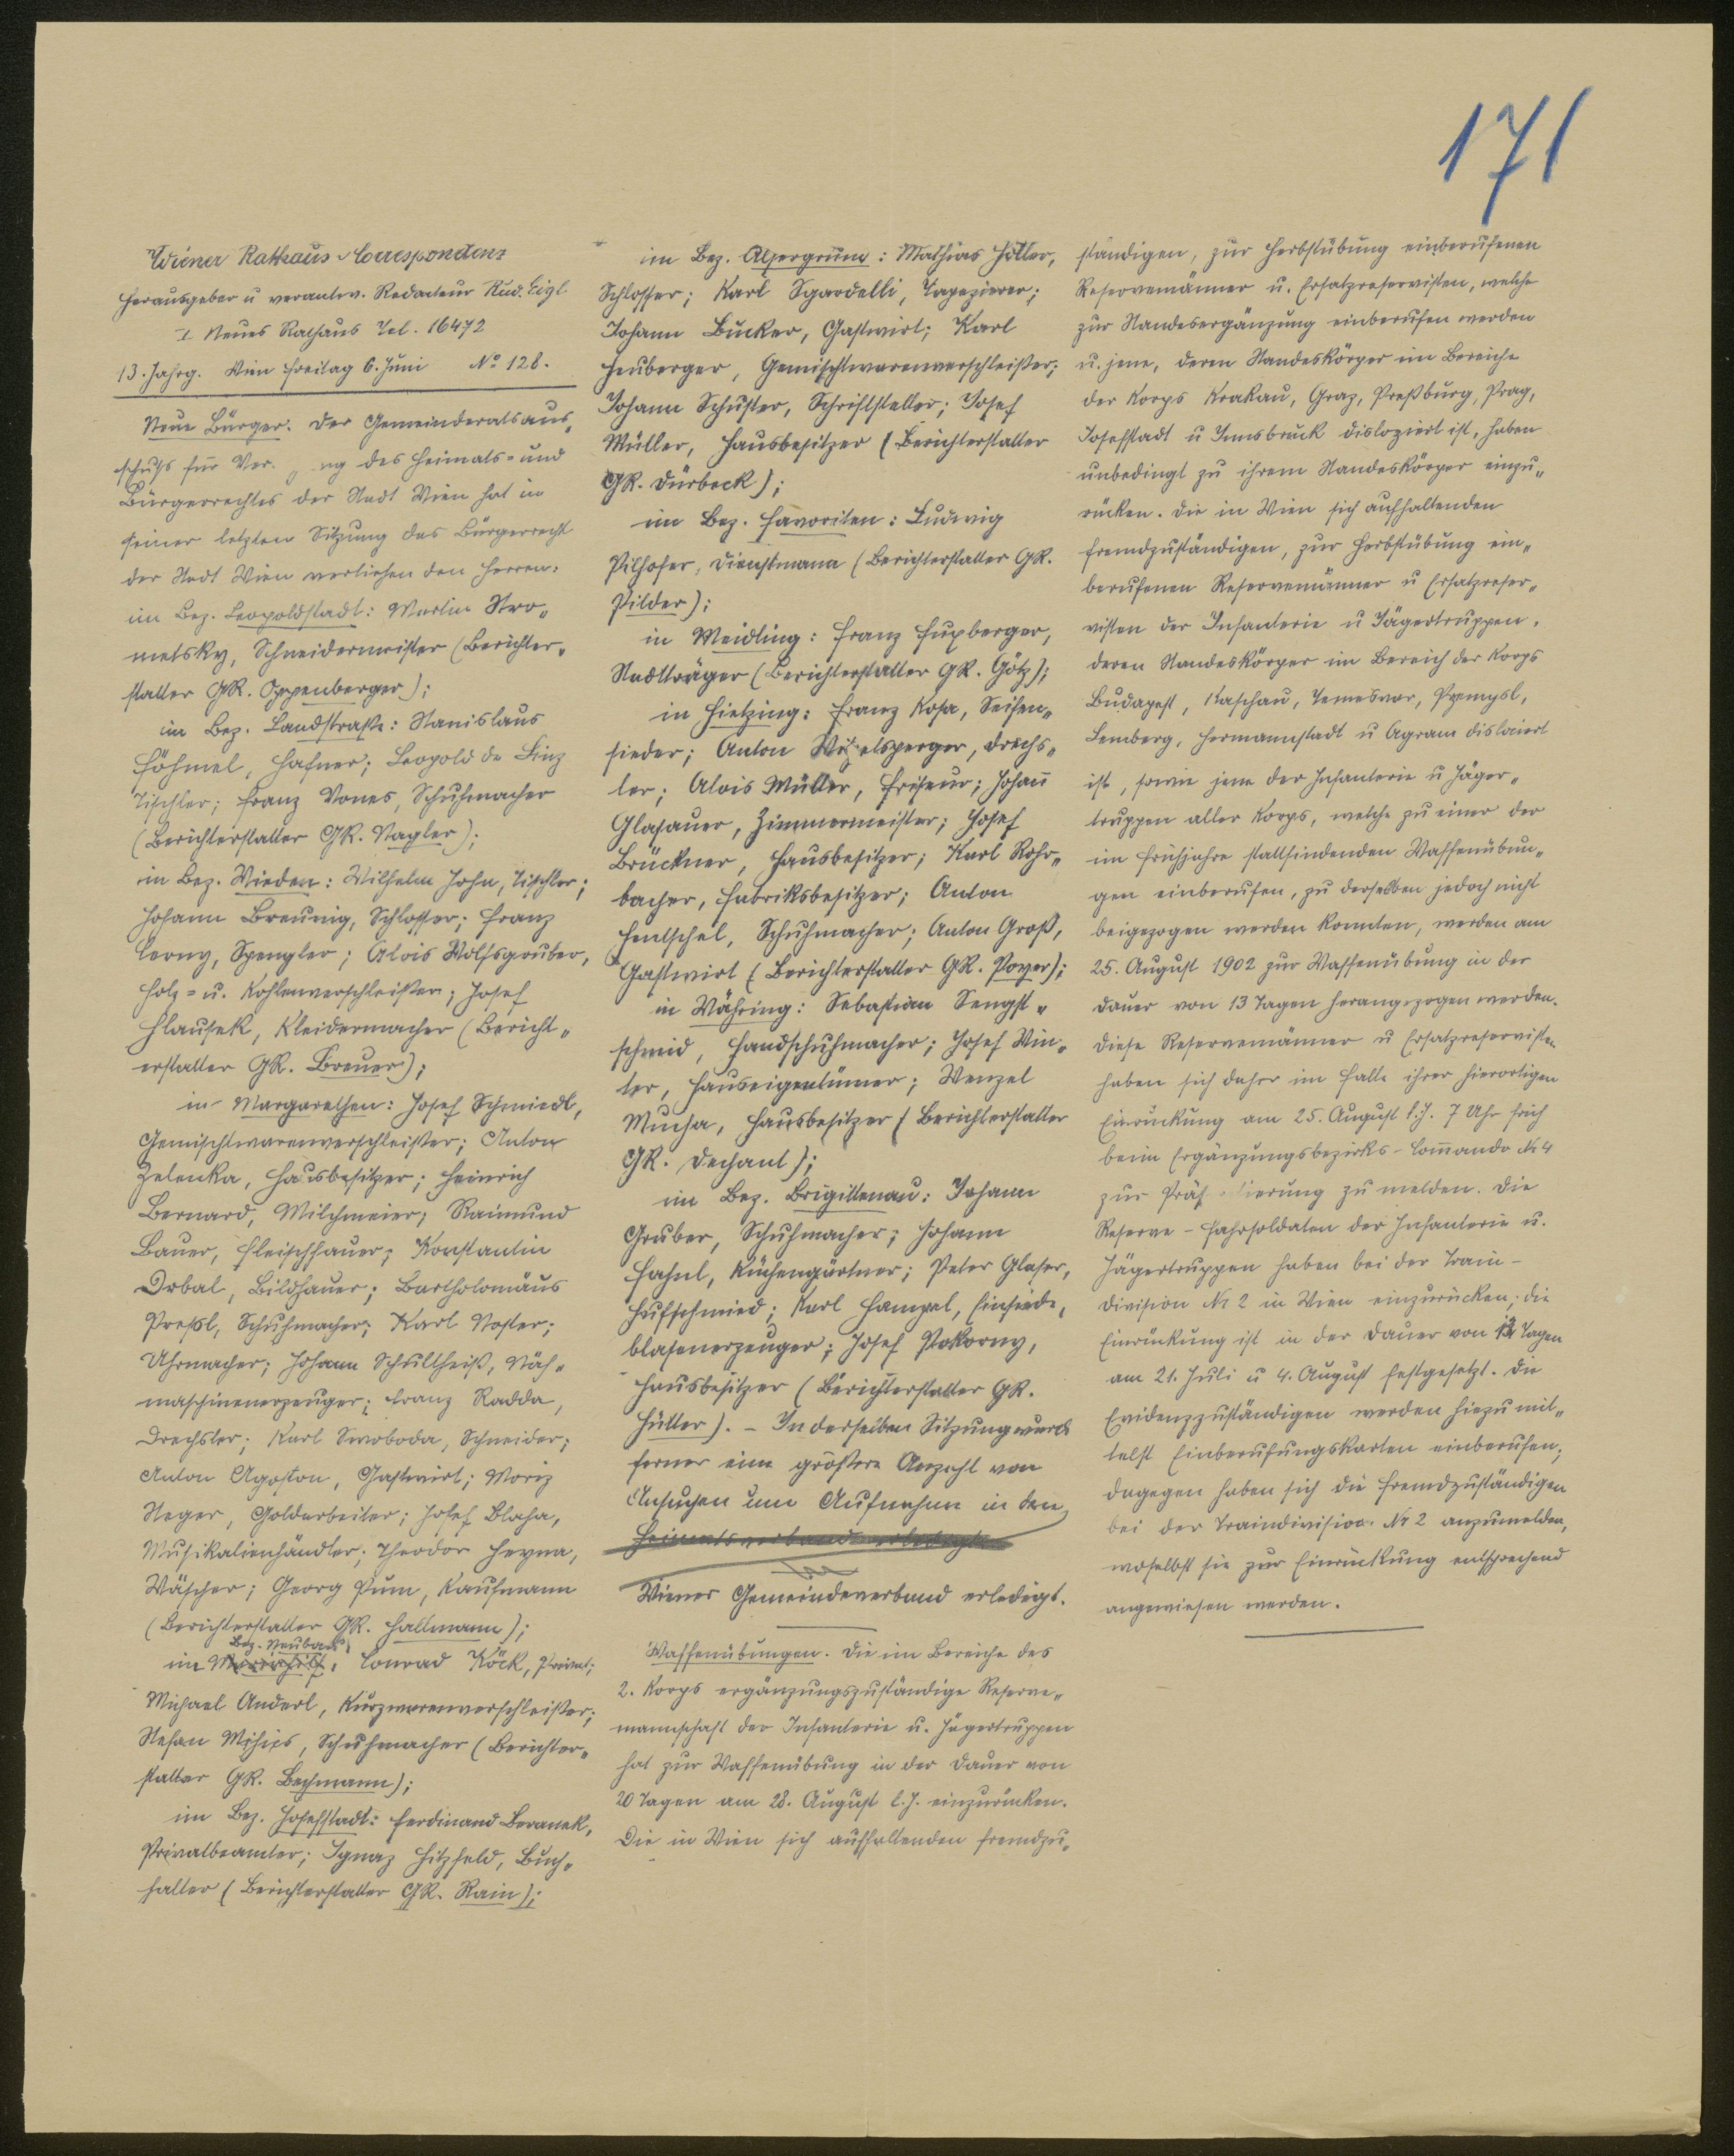 171
Wiener Rathaus-Correspondenz
Herausgeber u verantw. Redacteur Rud. Eigl
I. Neues Rathaus Tel. 16472
13. Jahrg. Wien Freitag 6. Juni No 128.
Neue Bürger. Der Gemeinderatsaus„
schuß für Ver ng des Heimats= und
Bürgerrechtes der Stadt Wien hat in
seiner letzten Sitzung das Bürgerrecht
der Stadt Wien verliehen den Herren:
im Bez. Leopoldstadt: Martin Stro„
metsky, Schneidermeister (Berichter„
statter GR. Oppenberger);
im Bez. Landstraße: Stanislaus
Höhmel, Hafner; Leopold de Sinz
Tischler; Franz Vones, Schuhmacher
(Berichterstatter GR. Nagler);
in Bez. Wieden: Wilhelm John, Tischler;
Johann Breunig, Schlosser; Franz
Cerny, Spengler; Alois Wolfsgruber,
Holz= u. Kohlenverschleißer; Josef
Hlausek, Kleidermacher (Bericht„
erstatter GR. Breuer);
in Margarethen: Josef Schmiedl,
Gemischtwarenverschleißer; Anton
Zelenka, Hausbesitzer; Heinrich
Bernard, Milchmeier; Raimund
Bauer, Fleischhauer; Konstantin
Orbal, Bildhauer; Bartholomäus
Preßl, Schuhmacher; Karl Noster;
Uhrmacher; Johann Schultheiß, Näh„
maschinenerzeuger; Franz Radda,
Drechsler; Karl Swoboda, Schneider;
Anton Agoston, Gastwirt; Moriz
Steger, Goldarbeiter; Josef Blaha,
Musikalienhändler; Theodor Heyna,
Wäscher; Georg Pum, Kaufmann
(Berichterstatter GR. Hallmann);
Bez. Neubau
im Mariahilf: Conrad Köck, Privat;
Michael Anderl, Kurzwarenverschleißer;
Stefan Mihics, Schuhmacher (Berichter„
statter GR. Bachmann);
im Bez. Josefstadt: Ferdinand Beranek,
Privatbeamter; Ignaz Hitzfeld, Buch„
halter (Berichterstatter GR. Rain);
im Bez. Alsergrund: Mathias Höller,
Schlosser; Karl Sgardelli, Tapezierer;
Johann Bucker, Gastwirt; Karl
Heuberger, Gemischtwarenverschleißer;
Johann Schuster, Schriftsteller; Josef
Müller, Hausbesitzer (Berichterstatter
GR. Dürbeck);
im Bez. Favoriten: Ludwig
Pilhofer, Dienstmann (Berichterstatter GR.
Pilder);
in Meidling: Franz Fuxberger,
Stadtträger (Berichterstatter GR. Götz);
in Hietzing: Franz Kosa, Seifen„
sieder; Anton Drechs„
ler; Alois Müller, Friseur; Johann
Glasauer, Zimmermeister; Josef
Brückner, Hausbesitzer; Karl Rohr„
bacher, Fabriksbesitzer; Anton
Hentschel, Schuhmacher; Anton Groß,
Gastwirt (Berichterstatter GR. Poyer);
in Währing: Sebastian Sengst„
schmid, Handschuhmacher; Josef Win„
ter, Hauseigentümer; Wenzel
Mucha, Hausbesitzer (Berichterstatter
GR. Dechant);
im Bez. Brigittenau: Johann
Gruber, Schuhmacher; Johann
Hahnl, Küchengärtner; Peter Glaser,
Hufschmied; Karl Hampel, Einsiede„
blasenerzeuger; Josef Pokorny,
Hausbesitzer (Berichterstatter GR.
Hütter). – In derselben Sitzung wurde
ferner eine größere Anzahl von
Ansuchen um Aufnahme in den
Heimatsverband erledigt
Wiener Gemeindeverband erledigt.
Waffenübungen. Die im Bereiche des
2. Korps ergänzungszuständige Reserve„
mannschaft der Infanterie u. Jägertruppen
hat zur Waffenübung in der Dauer von
20 Tagen am 28. August l.J. einzurücken.
Die in Wien sich aufhaltenden fremdzu„
ständigen, zur Herbstübung einberufenen
Reservemänner u. Ersatzreservisten, welche
zur Standesergänzung einberufen werden
u. jene, deren Standeskörper im Bereiche
der Korps Krakau, Graz, Preßburg, Prag,
Josefstadt u Innsbruck disloziert ist, haben
unbedingt zu ihrem Standeskörper einzu„
rücken. Die in Wien sich aufhaltenden
fremdzuständigen, zur Herbstübung ein„
berufenen Reservemänner u Ersatzreser„
visten der Infanterie u Jägertruppen,
deren Standeskörper im Bereich der Korps
Budapest, Kaschau, Temesvar, Przemysl,
Lemberg, Hermannstadt u Agram dislociert
ist, sowie jene der Infanterie u Jäger„
truppen aller Korps, welche zu einer der
im Frühjahre stattfindenden Waffenübun„
gen einberufen, zu derselben jedoch nicht
beigezogen werden konnten, werden am
25. August 1902 zur Waffenübung in der
Dauer von 13 Tagen herangezogen werden.
Diese Reservemänner u Ersatzreservisten
haben sich daher im Falle ihrer hierortigen
Einrückung am 25. August l.J. 7 Uhr früh
beim Ergänzungsbezirks-Commando Nr 4
zur Präs ierung zu melden. Die
Reserve-Fahrsoldaten der Infanterie u.
Jägertruppen haben bei der Train-
division Nr 2 in Wien einzurücken; die
Einrückung ist in der Dauer von Tagen
am 21. Juli u 4. August festgesetzt. Die
Evidenzzuständigen werden hiezu mit„
telst Einberufungskarten einberufen;
dagegen haben sich die Fremdzuständigen
bei der Traindivision Nr 2 anzumelden,
woselbst sie zur Einrückung entsprechend
angewiesen werden.